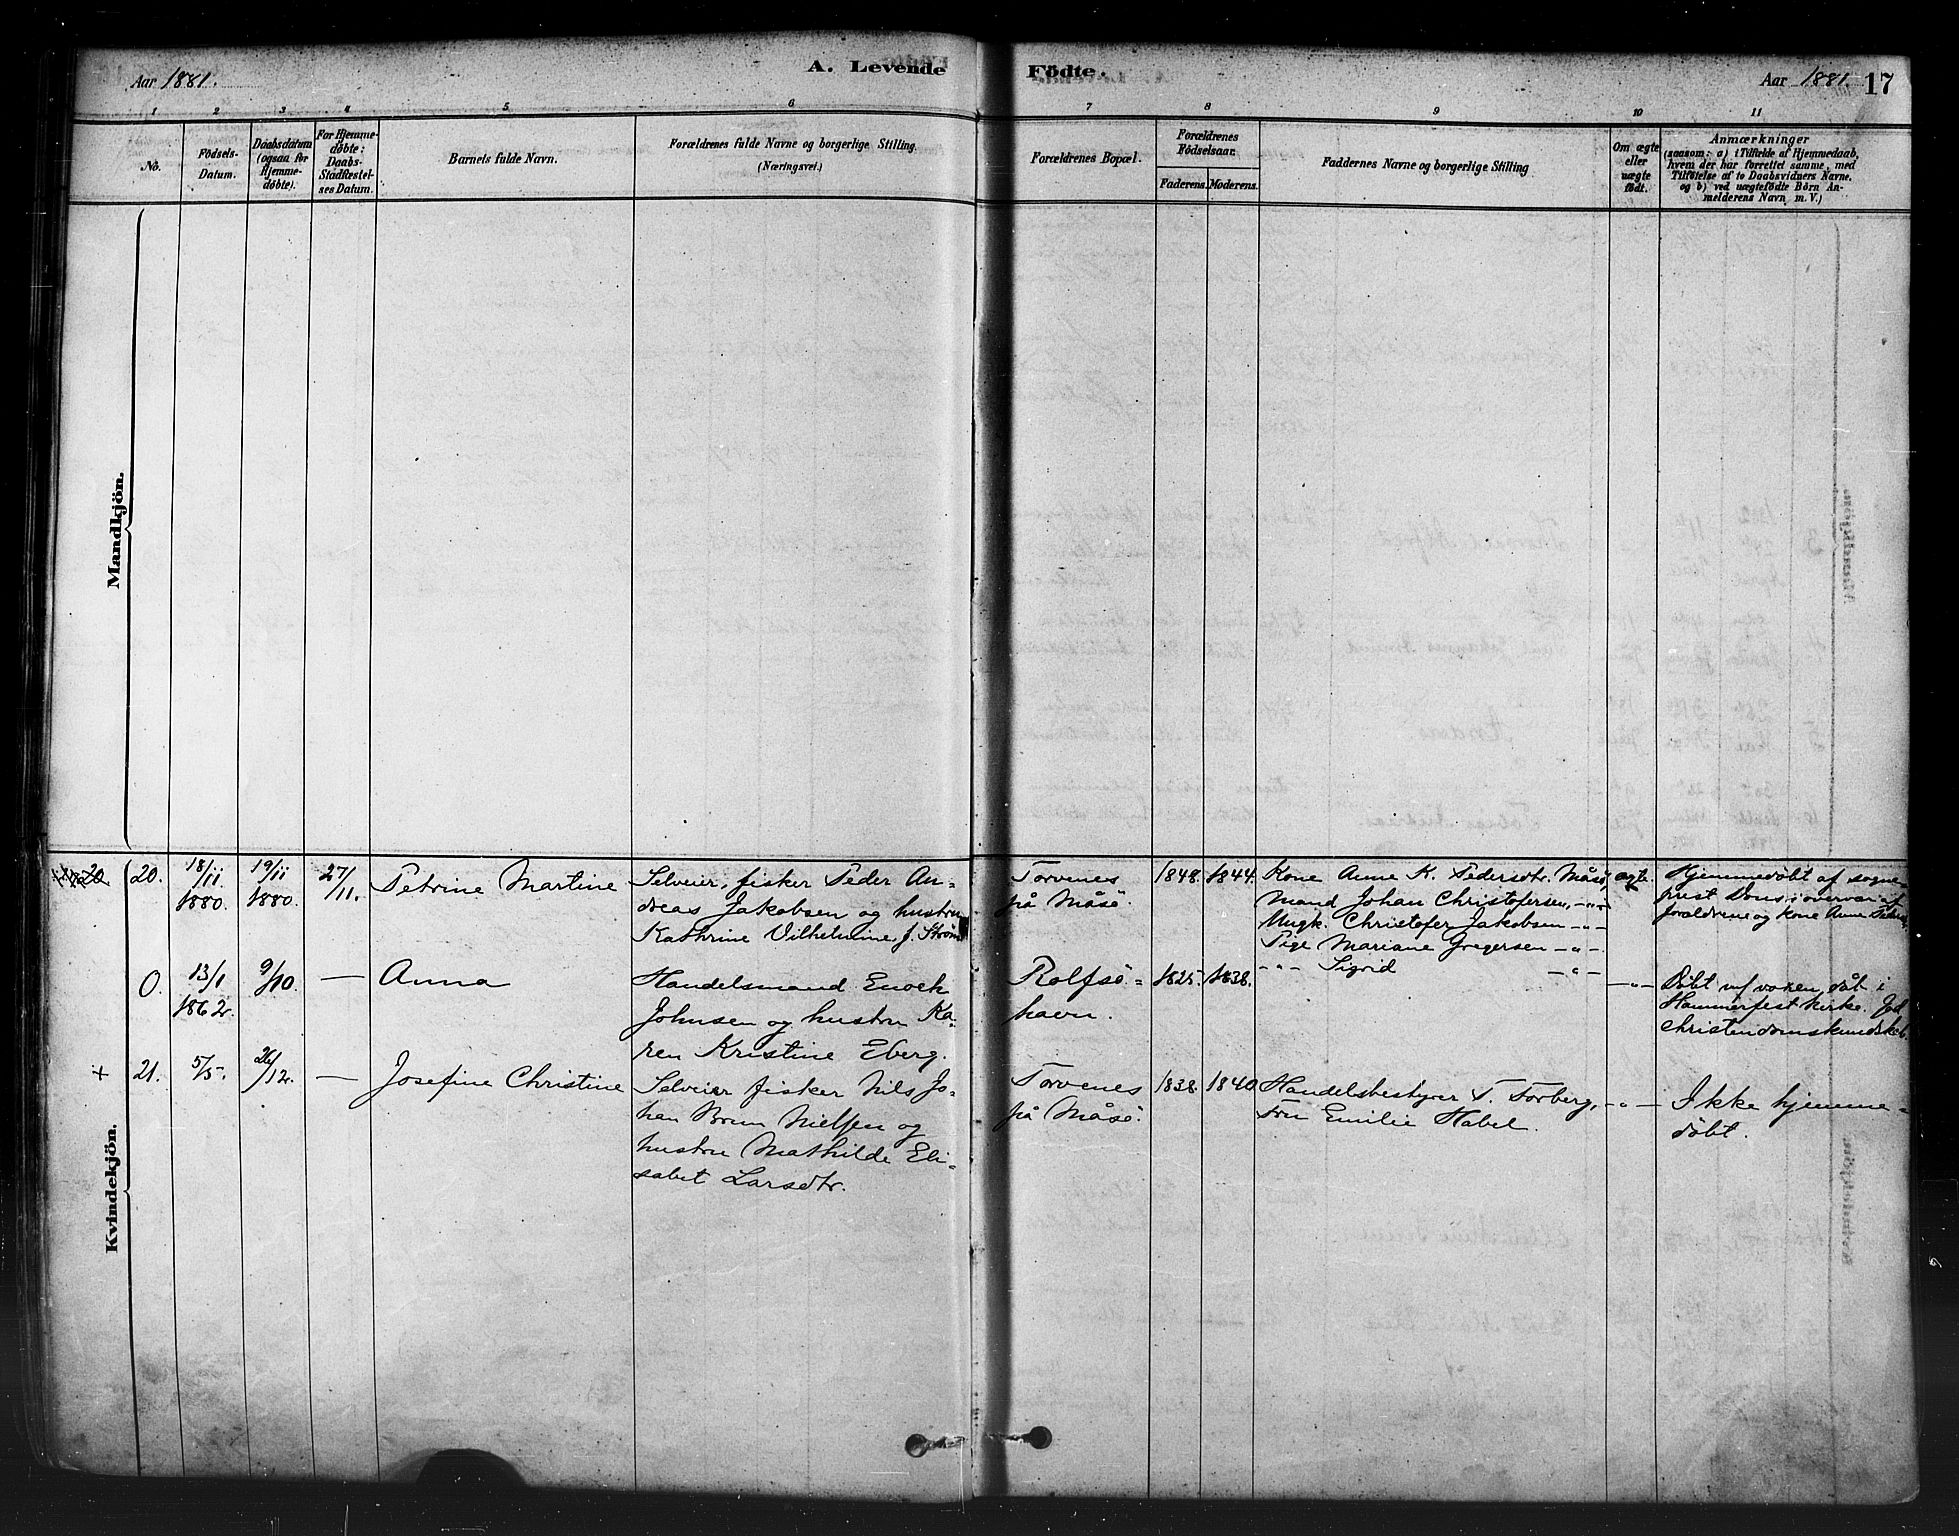 Aar 1881.
A. Levende
Fødte.
Aar 1881. 17
1 2 3 4 5 6 7 8 9 10 11
No.
Fødsels-
Datum.
Daabsdatum
(ogsaa for
Hjemme-
døbte).
For Hjemme-
døbte:
Daabs-
Stadfæstel-
ses Datum.
Barnets fulde Navn.
Forældrenes fulde Navne og borgerlige Stilling.
(Næringsvei.)
Forældrenes Bopæl.
Forældrenes
Fødselsaar.
Faderens. Moderens.
Faddernes Navne og borgerlige Stilling
Om ægte
eller
uægte
født.
Anmærkninger
(saasom: a) i Tilfælde af Hjemmedaab,
hvem der har forrettet samme, med
Tilføielse af to Daabsvidners Navne.
og b) ved uægtefødte Børn An-
melderens Navn m. V.)
Mandkjön.
Kvindekjön.
20.
18/11
1880.
19/11
1880.
27/11.
Petrine Martine
Selveier, fisker Peder An-
dreas Jakobsen og hustru
Kathrine Vilhelmine, f. Strøm
Torvenes
på Måsö.
1848. 1844.
Kone Anne K. Pedersdtr. Måsö,
Mand Johan Christofersen, -"-
Ungk. Christofer Jakobsen -"-
Pige Mariane Gregersen -"-
-"- Sigrid -"-
ægte.
Hjemmedøbt af sogne-
prest Dons i overvær af
forældrene og kone Anne
0.
13/1
1862.
9/10.
—
Anna
Handelsmand Enoch
Johnsen og hustru Ka-
ren Kristine Eberg.
Rolfsö-
havn.
1825. 1838.
-"-
Døbt v/ voxen dåb i
Hammerfest kirke.
christendomskundskab.
+ 21.
5/5.
26/12.
—
Josefine Christine
Selveier fisker Nils Jo-
han Brun Nielsen og
hustru Mathilde Eli-
sabet Larsdtr.
Torvenes
på Måsö.
1838. 1840.
Handelsbestyrer T. Torberg,
Fru Emilie Habel.
-"-
Ikke hjemme-
døbt.